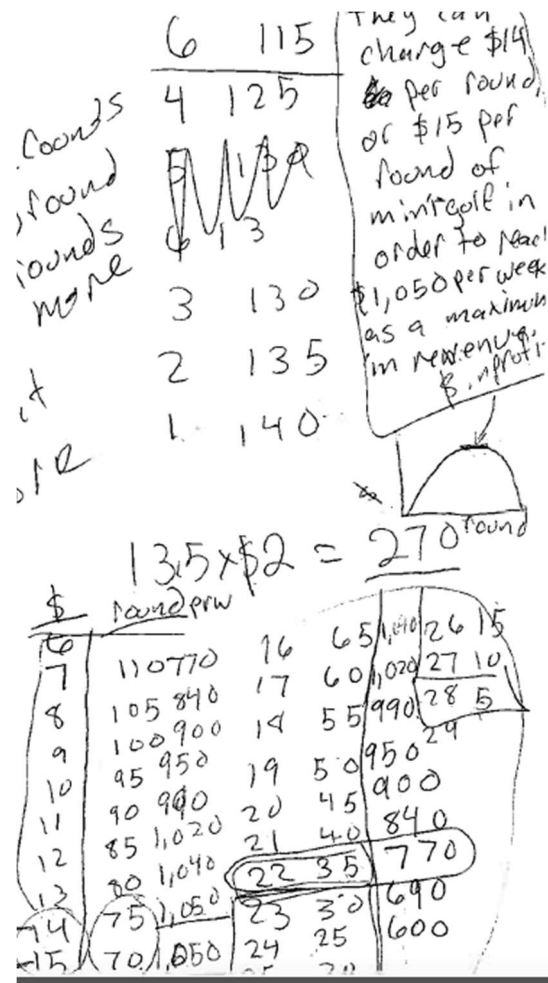 6 115
4 125
3 130
2 135
1 140
rounds
round
rounds
more
They can
charge $14
per round,
or $15 per
round of
minigolf in
order to reach
$1,050 per week
as a maximum
in revenue.
13.5 x $2 = 270
round
$ round prw
6
7 110 770
8 105 840
9 100 900
10 95 950
11 90 990
12 85 1,020
13 80 1,040
14 75 1,050
15 70 1,050
16 65 1,040
17 60 1,020
18 55 990
19 50 950
20 45 900
21 40 840
22 35 770
23 30 690
24 25 600
26 15
27 10
28 5
29